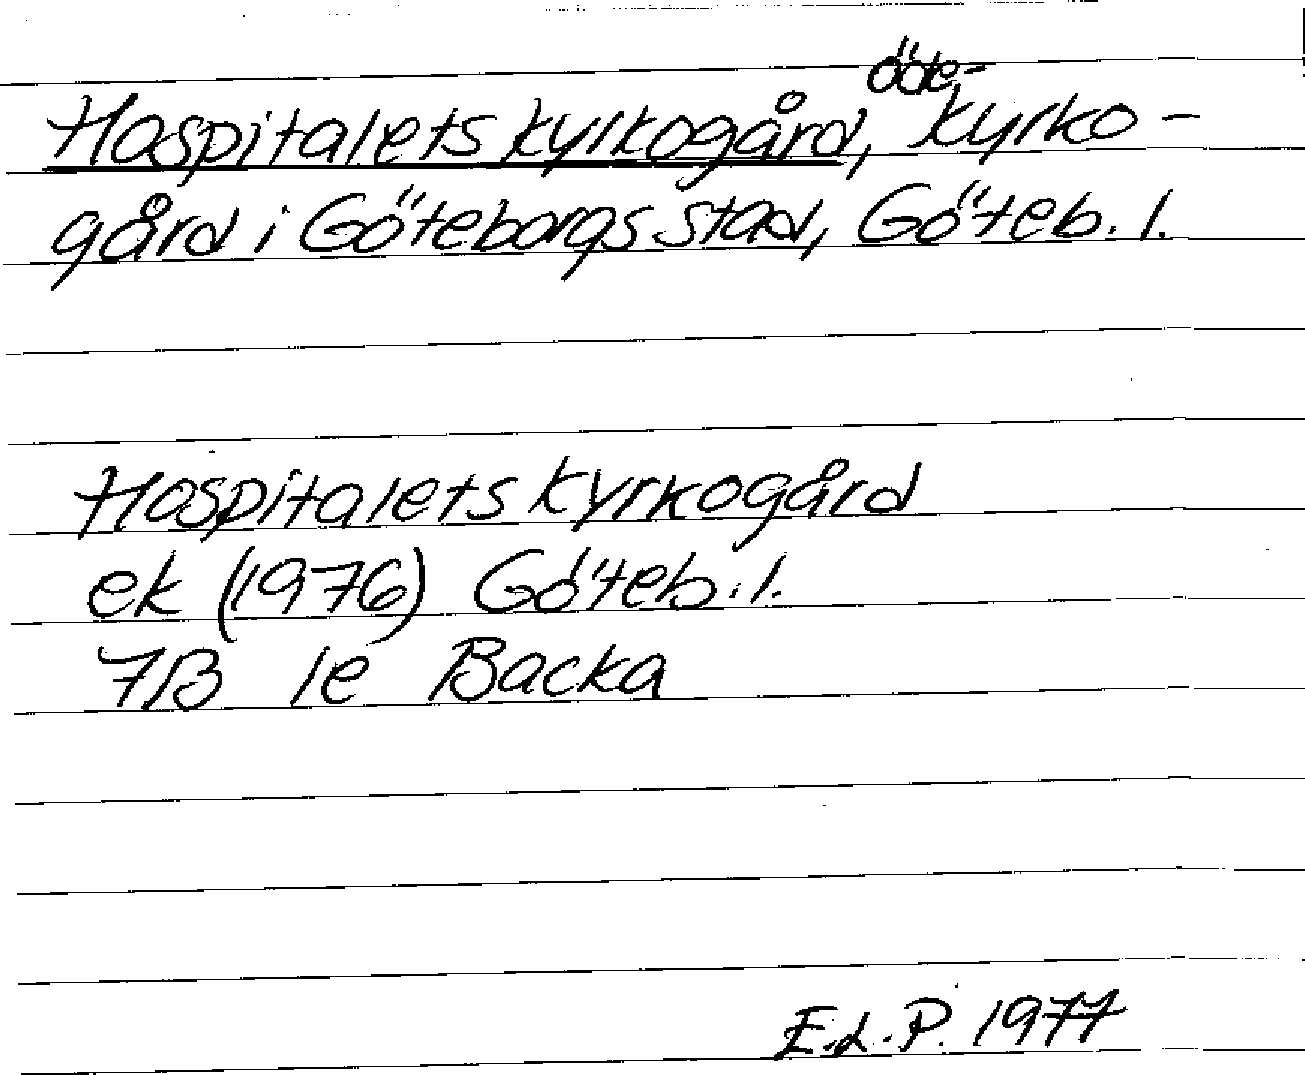 Hospitalets kyrkogård, öde-kyrko-
gård i Göteborgs stad, Göteb. l.
Hospitalets kyrkogård
ek (1976) Göteb. l.
7B 1e Backa
E.L.P. 1977